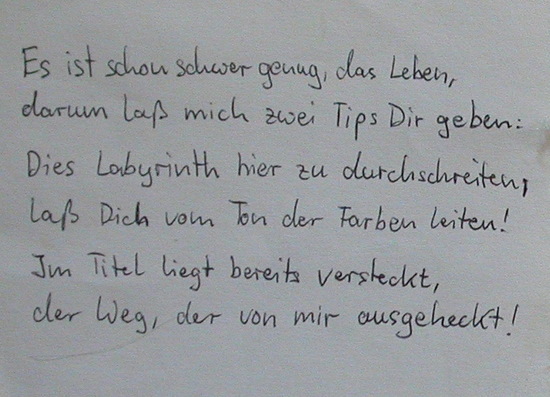 Es ist schon schwer genug, das Leben,
darum laß mich zwei Tips Dir geben:
Dies Labyrinth hier zu durchschreiten,
laß Dich vom Ton der Farben leiten!
Im Titel liegt bereits versteckt,
der Weg, der von mir ausgeheckt!